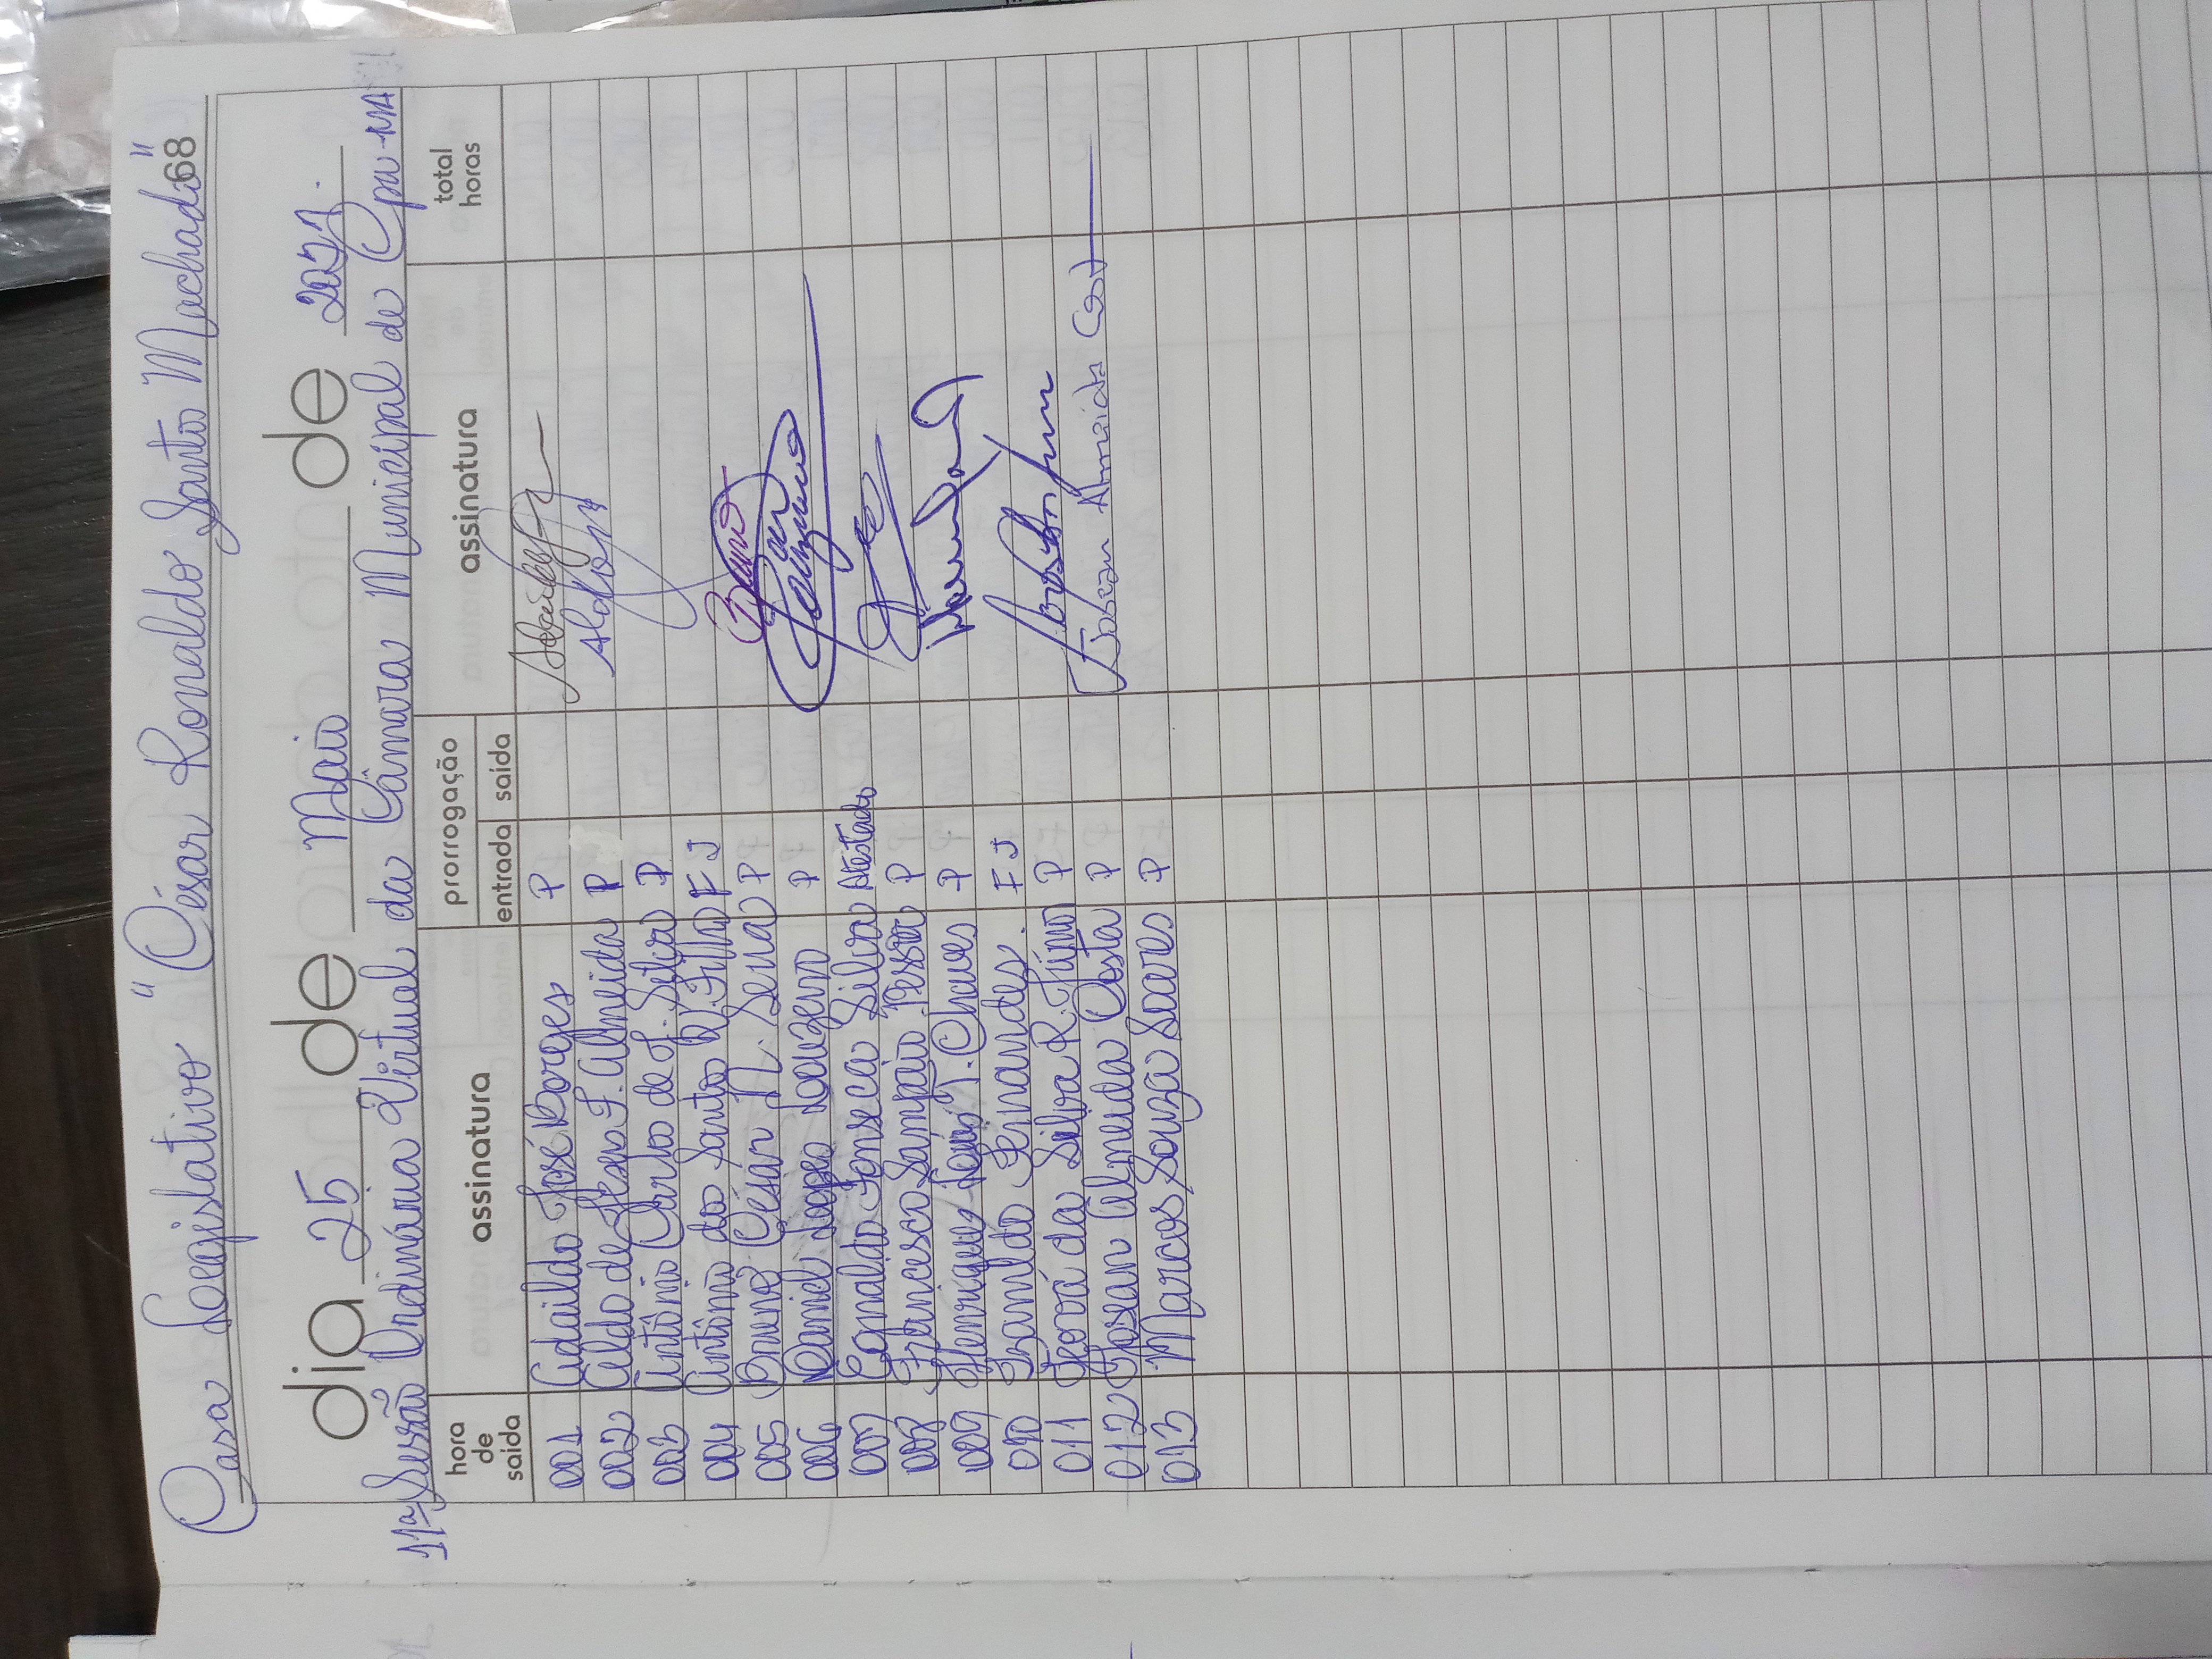 Casa Legislativo "César Ronaldo Santo Machado"
68
dia 25 de Maio de 2021.
11ª Sessão Ordinária Virtual da Câmara Municipal de
hora de saída assinatura prorrogação entrada saída assinatura total horas
001 Adaildo José Borges P
002 Aldo de Jesus F. Almeida P Aldo
003 Antônio Carlos de J. Silva P
004 Antônio do Santo Filho F J
005 Bruno César N. Sena P Bruno
006 Daniel Lopes P
007 Ednaldo Fonseca Silva Atestado
008 Francisco Sampaio Pessoa P
009 Henrique T. Chaves P
010 Fernandes. F J
011 Jeová da Silva R. Júnior P
012 Josean Almeida Costa P Josean Almeida Cost
013 Marcos Souza Soares P